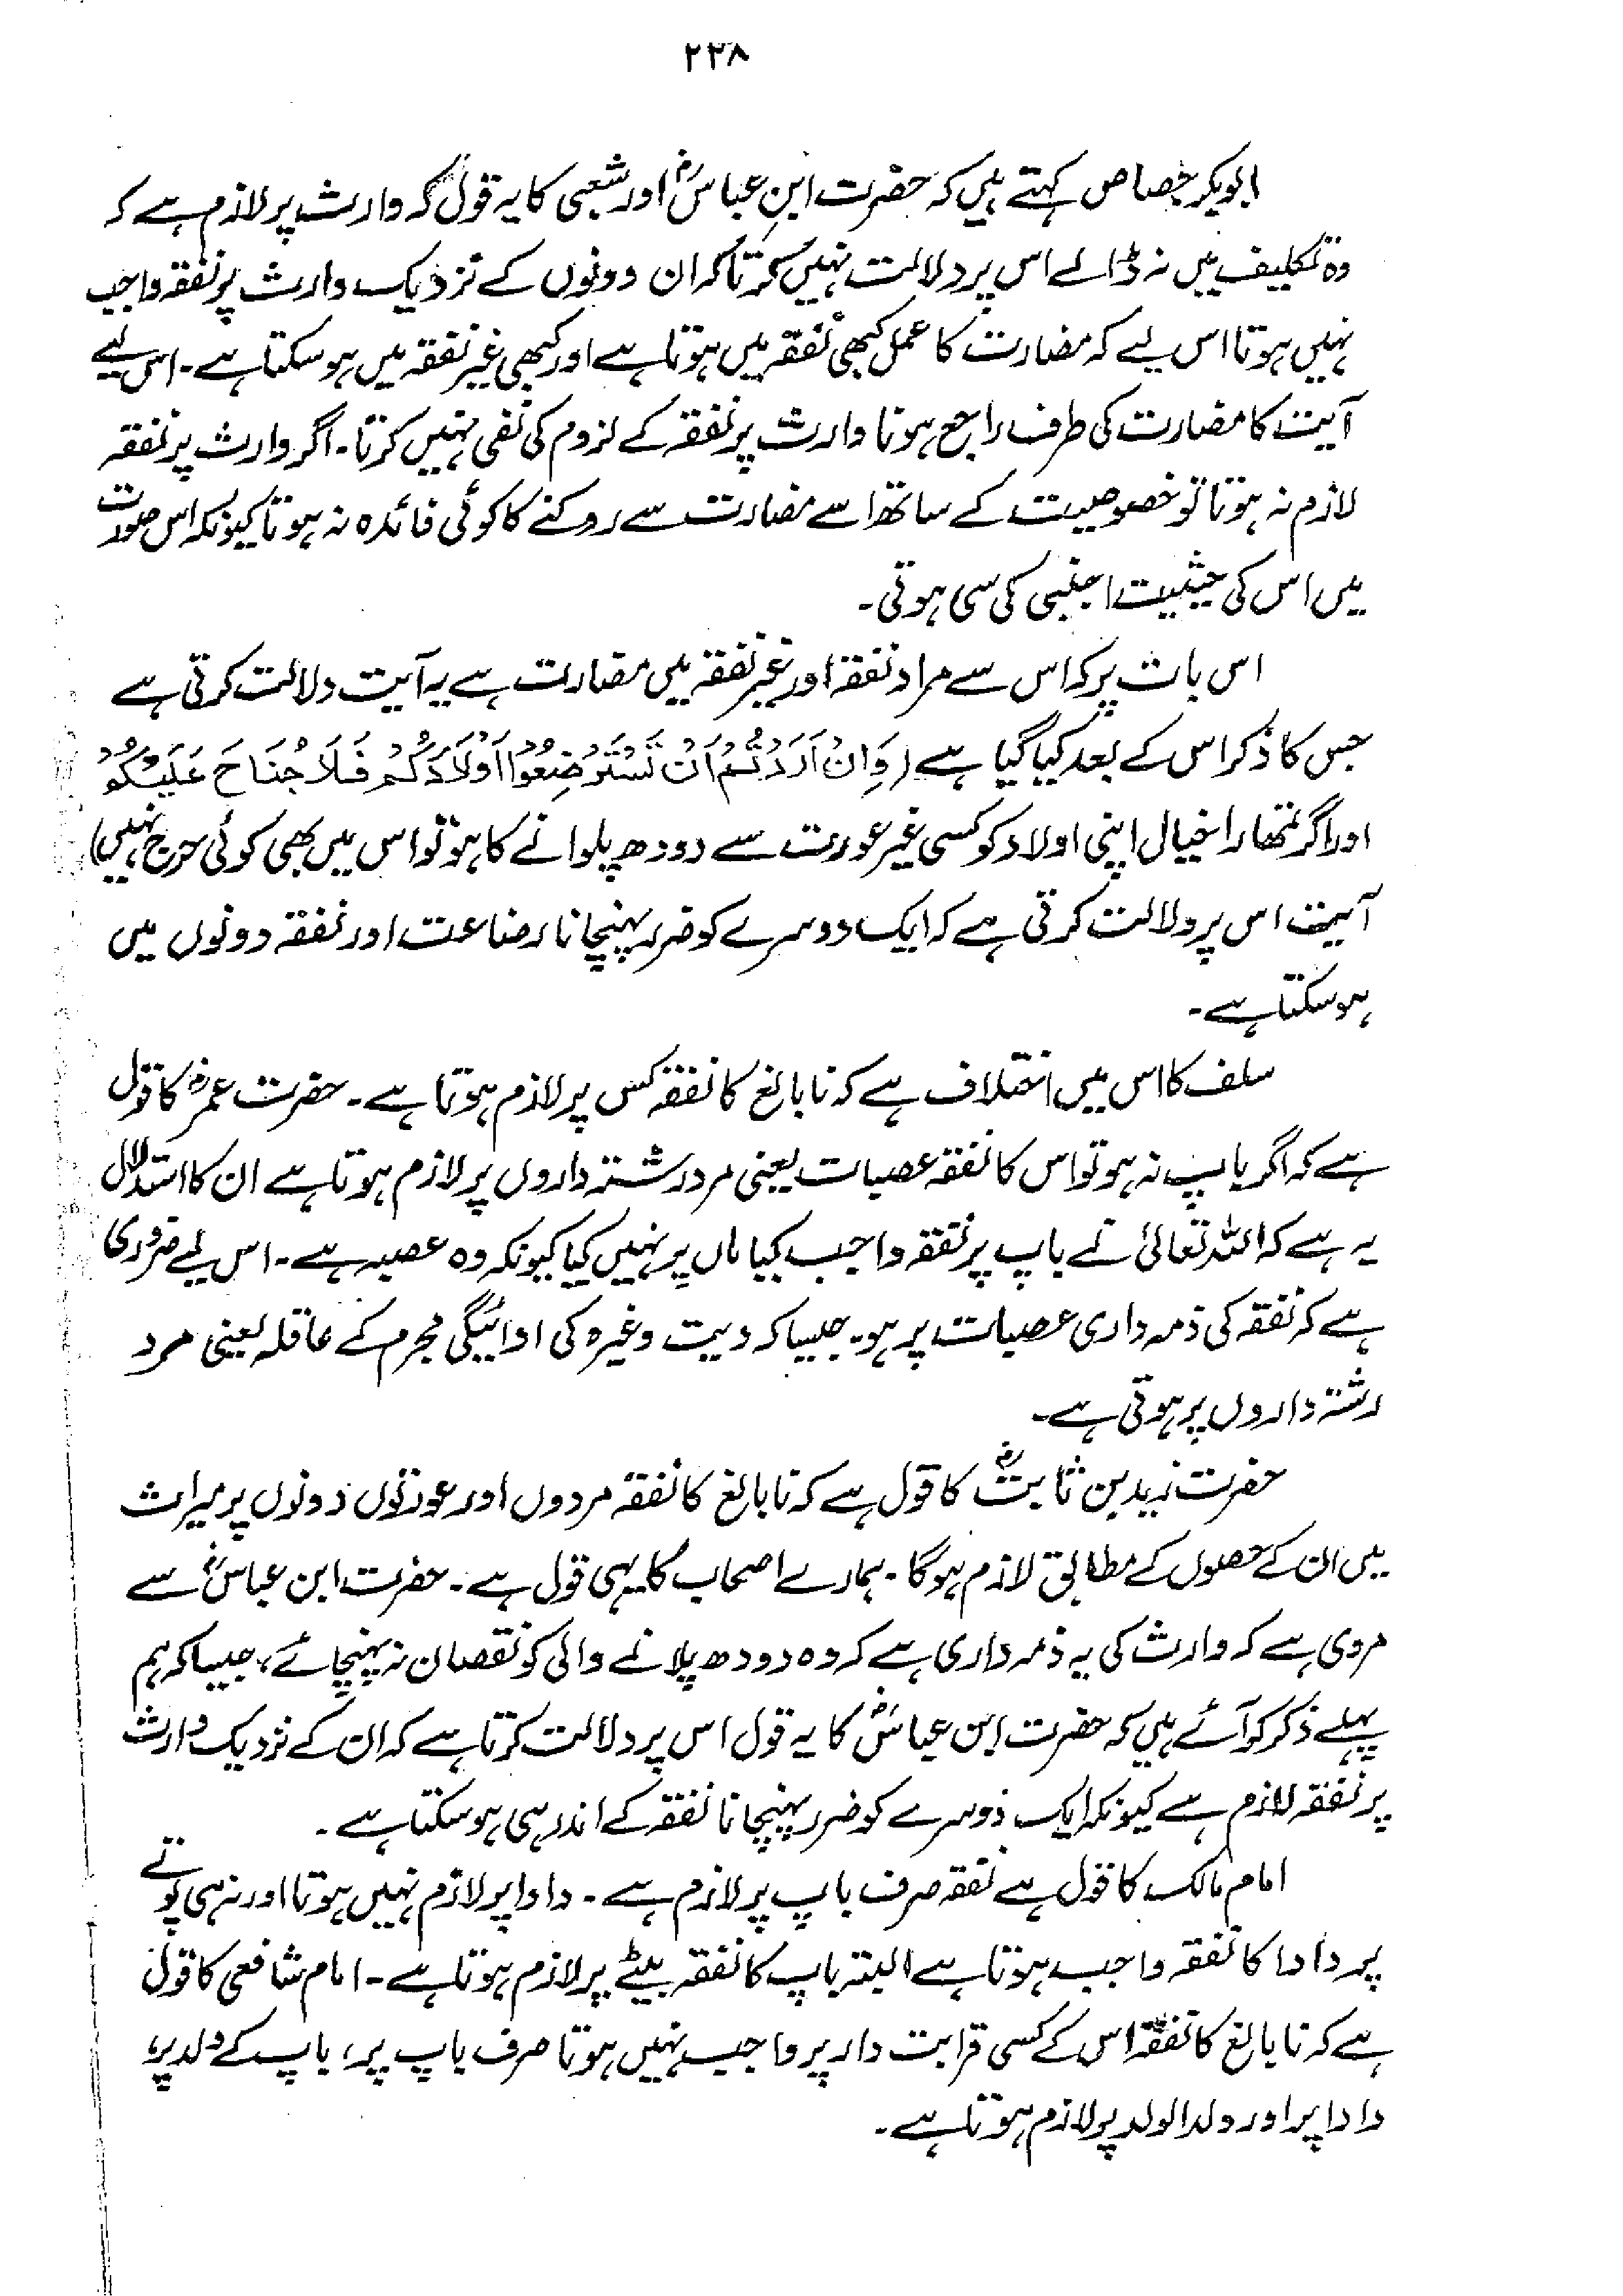 ۲۳۸
ابوبکر جصاص کہتے ہیں کہ حضرت ابنِ عباسؓ اور شعبی کا یہ قول کہ وارث پر لازم ہے کہ
وہ تکلیف میں نہ ڈالے اس پر دلالت نہیں کرتا کہ ان دونوں کے نزدیک وارث پر نفقہ واجب
نہیں ہوتا اس لیے کہ مضارت کا عمل کبھی نفقہ میں ہوتا ہے اور کبھی غیر نفقہ میں ہو سکتا ہے۔ اس لیے
آیت کا مضارت کی طرف راجع ہونا وارث پر نفقہ کے لزوم کی نفی نہیں کرتا۔ اگر وارث پر نفقہ
لازم نہ ہوتا تو خصوصیت کے ساتھ اسے مضارت سے روکنے کا کوئی فائدہ نہ ہوتا کیونکہ اس صورت
میں اس کی حیثیت اجنبی کی سی ہوتی۔
اس بات پر کہ اس سے مراد نفقہ اور غیر نفقہ میں مضارت ہے یہ آیت دلالت کرتی ہے
جس کا ذکر اس کے بعد کیا گیا ہے (وَاِنْ اَرَدْتُّمْ اَنْ تَسْتَرْضِعُوْا اَوْلَادَكُمْ فَلَا جُنَاحَ عَلَيْكُمْ
اور اگر تمھارا خیال اپنی اولاد کو کسی غیر عورت سے دودھ پلوانے کا ہو تو اس میں بھی کوئی حرج نہیں)
آیت اس پر دلالت کرتی ہے کہ ایک دوسرے کو ضرر پہنچانا رضاعت اور نفقہ دونوں میں
ہو سکتا ہے۔
سلف کا اس میں اختلاف ہے کہ نابالغ کا نفقہ کس پر لازم ہوتا ہے۔ حضرت عمرؓ کا قول
ہے کہ اگر باپ نہ ہو تو اس کا نفقہ عصبات یعنی مرد رشتہ داروں پر لازم ہوتا ہے ان کا استدلال
یہ ہے کہ اللہ تعالیٰ نے باپ پر نفقہ واجب کیا ماں پر نہیں کیا کیونکہ وہ عصبہ ہے۔ اس لیے ضروری
ہے کہ نفقہ کی ذمہ داری عصبات پر ہو۔ جیسا کہ دیت وغیرہ کی ادائیگی مجرم کے عاقلہ یعنی مرد
رشتہ داروں پر ہوتی ہے۔
حضرت زید بن ثابتؓ کا قول ہے کہ نابالغ کا نفقہ مردوں اور عورتوں دونوں پر میراث
میں ان کے حصوں کے مطابق لازم ہوگا۔ ہمارے اصحاب کا یہی قول ہے۔ حضرت ابن عباسؓ سے
مروی ہے کہ وارث کی یہ ذمہ داری ہے کہ وہ دودھ پلانے والی کو نقصان نہ پہنچائے، جیسا کہ ہم
پہلے ذکر کر آئے ہیں کہ حضرت ابن عباسؓ کا یہ قول اس پر دلالت کرتا ہے کہ ان کے نزدیک وارث
پر نفقہ لازم ہے کیونکہ ایک دوسرے کو ضرر پہنچانا نفقہ کے اندر ہی ہو سکتا ہے۔
امام مالک کا قول ہے نفقہ صرف باپ پر لازم ہے۔ دادا پر لازم نہیں ہوتا اور نہ ہی پوتے
پر دادا کا نفقہ واجب ہوتا ہے البتہ باپ کا نفقہ بیٹے پر لازم ہوتا ہے۔ امام شافعی کا قول
ہے کہ نابالغ کا نفقہ اس کے کسی قرابت دار پر واجب نہیں ہوتا صرف باپ پر، باپ کے ولد پر،
دادا پر اور ولد الولد پر لازم ہوتا ہے۔